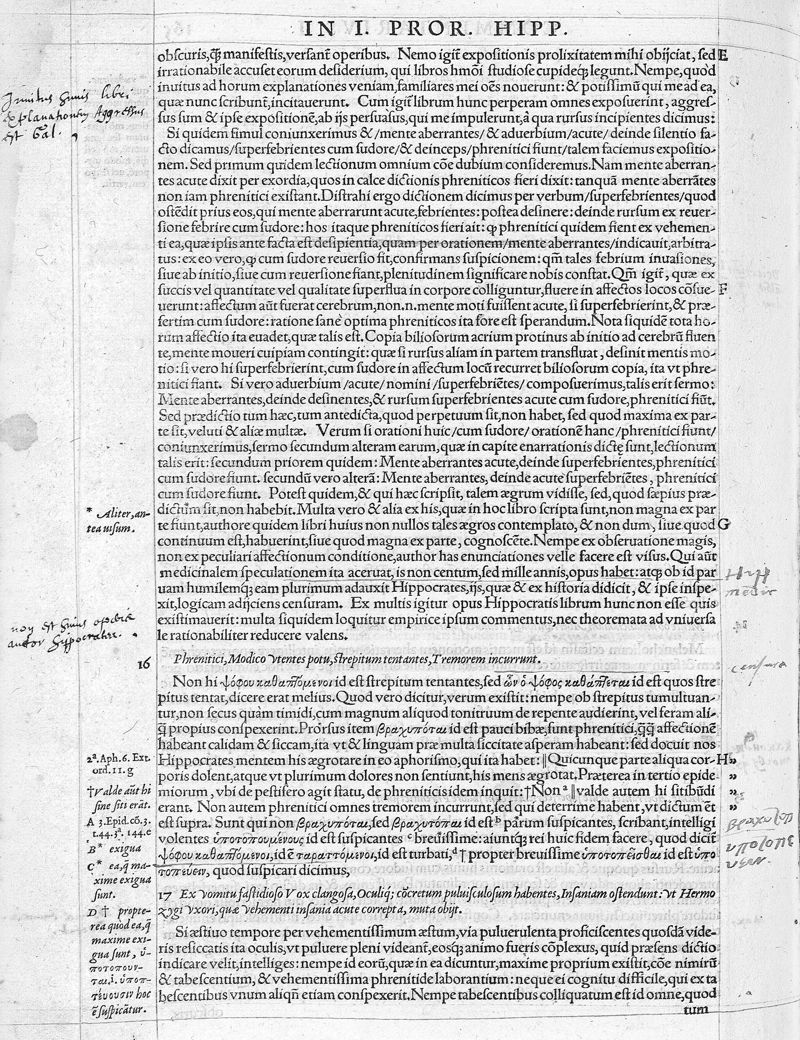 IN I. PROR. HIPP.
obscuris,q̃ȝ manifestis,versant operibus. Nemo igit̃ expositionis prolixitatem mihi obijciat, sed E
irrationabile accuset eorum desiderium, qui libros hmõi studiose cupideqȝ legunt. Nempe, quod
inuitus ad horum explanationes veniam,familiares mei oẽs nouerunt: & potissimũ qui me ad ea,
quæ nunc scribunt̃,incitauerunt. Cum igit̃ librum hunc perperam omnes exposuerint, aggres-
sus sum & ipse expositionẽ,ab ijs persuasus,qui me impulerunt,à qua rursus incipientes dicimus:
Si quidem simul coniunxerimus &/mente aberrantes/ & aduerbium/acute/deinde silentio fa-
cto dicamus/superfebrientes cum sudore/& deinceps/phrenitici fiunt/talem faciemus expositio-
nem. Sed primum quidem lectionum omnium cõe dubium consideremus. Nam mente aberran-
tes acute dixit per exordia,quos in calce dictionis phreniticos fieri dixit: tanquã mente aberrãtes
non iam phrenitici existant. Distrahi ergo dictionem dicimus per verbum/superfebrientes/quod
ostẽdit prius eos,qui mente aberrarunt acute,febrientes: postea desinere: deinde rursum ex reuer-
sione febrire cum sudore: hos itaque phreniticos fieri ait: ꝙ phrenitici quidem fient ex vehemen-
ti ea,quæ ipsis ante facta est desipientia,quam per orationem/mente aberrantes/indicauit,arbitra-
tus: ex eo vero,ꝙ cum sudore reuersio fit,confirmans suspicionem: qm̃ tales febrium inuasiones,
siue ab initio,siue cum reuersione fiant,plenitudinem significare nobis constat. Qm̃ igit̃, quæ ex
succis vel quantitate vel qualitate superflua in corpore colliguntur,fluere in affectos locos cõsue- F
uerunt: affectum aũt fuerat cerebrum,non.n.mente moti fuissent acute, si superfebrierint,& præ-
sertim cum sudore: ratione sane optima phreniticos ita fore est sperandum. Nota siquidẽ tota ho-
rum affectio ita euadet,quæ talis est. Copia biliosorum acrium protinus ab initio ad cerebrũ fluen
te,mente moueri cuipiam contingit: quæ si rursus aliam in partem transfluat, desinit mentis mo-
tio: si vero hi superfebrierint,cum sudore in affectum locũ recurret biliosorum copia, ita vt phre-
nitici fiant. Si vero aduerbium /acute/ nomini /superfebriẽtes/ composuerimus,talis erit sermo:
Mente aberrantes,deinde desinentes,& rursum superfebrientes acute cum sudore,phrenitici fiũt.
Sed prædictio tum hæc,tum antedicta,quod perpetuum sit,non habet, sed quod maxima ex par-
te sit,veluti & aliæ multæ. Verum si orationi huic/cum sudore/ orationẽ hanc/phrenitici fiunt/
coniunxerimus,sermo secundum alteram earum,quæ in capite enarrationis dictę sunt,lectionum
talis erit: secundum priorem quidem: Mente aberrantes acute,deinde superfebrientes,phrenitici
cum sudore fiunt. secundũ vero alterã: Mente aberrantes, deinde acute superfebriẽtes, phrenitici
cum sudore fiunt. Potest quidem,& qui hæc scripsit, talem ægrum vidisse, sed,quod sæpius præ-
dictũm sit,non habebit. Multa vero & alia ex his,quæ in hoc libro scripta sunt,non magna ex par
te fiunt,authore quidem libri huius non nullos tales ægros contemplato, & non dum, siue quod G
continuum est,habuerint,siue quod magna ex parte, cognoscẽte. Nempe ex obseruatione magis,
non ex peculiari affectionum conditione,author has enunciationes velle facere est visus. Qui aũt
medicinalem speculationem ita aceruat, is non centum,sed mille annis,opus habet: atqȝ ob id par
uam humilemqȝ eam plurimum adauxit Hippocrates,ijs,quæ & ex historia didicit, & ipse inspe-
xit,logicam adijciens censuram. Ex multis igitur opus Hippocratis librum hunc non esse quis
existimauerit: multa siquidem loquitur empirice ipsum commentus,nec theoremata ad vniuersa
le rationabiliter reducere valens.
16 Phrenitici, Modico vtentes potu, strepitum tentantes, Tremorem incurrunt.
Non hi ψόφου καθαπτόμενοι id est strepitum tentantes,sed ὧν ὁ ψόφος καθάπτεται id est quos stre
pitus tentat,dicere erat melius. Quod vero dicitur,verum existit: nempe ob strepitus tumultuan-
tur,non secus quàm timidi,cum magnum aliquod tonitruum de repente audierint, vel feram ali-
q̃ propius conspexerint. Prorsus item βραχυπόται id est pauci bibæ,sunt phrenitici,q̃q̃ affectionẽ
habeant calidam & siccam,ita vt & linguam præ multa siccitate asperam habeant: sed docuit nos
Hippocrates mentem his ægrotare in eo aphorismo,qui ita habet: ‖Quicunque parte aliqua cor- H „
poris dolent,atque vt plurimum dolores non sentiunt,his mens ægrotat. Præterea in tertio epide „
miorum , vbi de pestifero agit statu, de phreniticis idem inquit: †Non a ‖valde autem hi sitibũdi „
erant. Non autem phrenitici omnes tremorem incurrunt,sed qui deterrime habent,vt dictum est „
est supra. Sunt qui non βραχυπόται,sed βραχυτόπαι id est b parum suspicantes, scribant,intelligi
volentes ὑποτοπουμένους id est suspicantes c breuissime: aiuntqȝ rei huic fidem facere, quod dicit
ψόφου καθαπτόμενοι,id ẽ ταραττόμενοι,id est turbati, d † propter breuissime ὑποτοπεῖσθαι id est ὑπο
τοπεύειν, quod suspicari dicimus,
17 Ex Vomitu fastidioso Vox clangosa, Oculiqȝ cõcretum puluisculosum habentes, Insaniam ostendunt: vt Hermo
zygi vxori, quæ vehementi insania acute correpta, muta obijt.
Si æstiuo tempore per vehementissimum æstum,via puluerulenta proficiscentes quosdã vide-
ris resiccatis ita oculis,vt puluere pleni videant̃,eosqȝ animo fueris cõplexus, quid præsens dictio
indicare velit,intelliges: nempe id eorũ,quæ in ea dicuntur,maxime proprium existit,cõe nimirũ
& tabescentium, & vehementissima phrenitide laborantium: neque ei cognitu difficile,qui ex ta
bescentibus vnum aliqñ etiam conspexerit. Nempe tabescentibus colliquatum est id omne,quod
tum
Inuitus huius libri
explanationem Aggressus
est Gal.
* Aliter, an-
tea uisum.
non est huius operis
autor Hyppocrates.
2ª. Aph. 6. Ext.
ord. 11. g
† Valde aũt hi
sine siti erãt.
A 3. Epid. cõ. 3.
t. 44. 3ª. 144. e
B* exigua
C* ea,q̃ ma-
xime exigua
sunt.
D † propte-
rea quod ea,q̃
maxime exi-
gua sunt, ὑ-
ποτοπουν-
ται.i. ὑποπ-
τεύουσιν hoc
ẽ suspicãtur.
Hipp
medic
censura
βραχυποτ
ὑποτοπε
υειν.